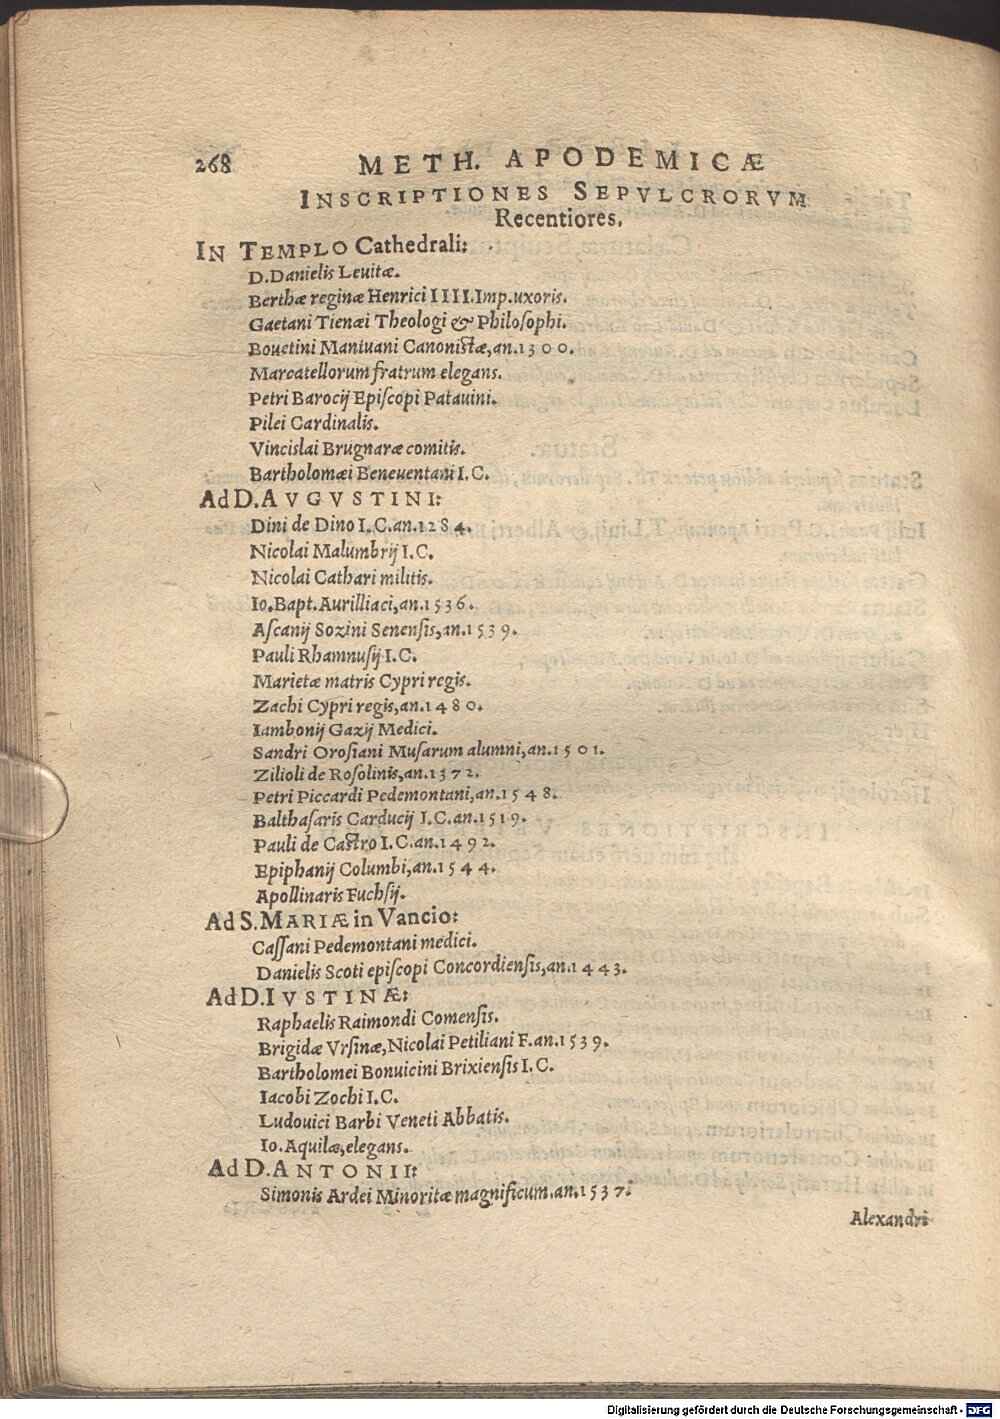 268 METH. APODEMICÆ
INSCRIPTIONES SEPVLCRORVM
Recentiores.
IN TEMPLO Cathedrali:
D. Danielis Leuitæ.
Berthæ reginæ Henrici IIII. Imp. uxoris.
Gaetani Tienæi Theologi & Philoſophi.
Bouetini Mantuani Canoniſtæ, an. 1300.
Marcatellorum fratrum elegans.
Petri Barocij Epiſcopi Patauini.
Pilei Cardinalis.
Vincislai Brugnaræ comitis.
Bartholomæi Beneuentani I. C.
Ad D. AVGVSTINI:
Dini de Dino I. C. an. 1284.
Nicolai Malumbrij I. C.
Nicolai Cathari militis.
Io. Bapt. Aurilliaci, an. 1536.
Aſcanij Sozini Senenſis, an. 1539.
Pauli Rhamnuſij I. C.
Marietæ matris Cypri regis.
Zachi Cypri regis, an. 1480.
Iambonij Gazij Medici.
Sandri Oroſiani Muſarum alumni, an. 1501.
Zilioli de Roſolinis, an. 1372.
Petri Piccardi Pedemontani, an. 1548.
Balthaſaris Carducij I. C. an. 1519.
Pauli de Caſtro I. C. an. 1492.
Epiphanij Columbi, an. 1544.
Apollinaris Fuchſij.
Ad S. MARIÆ in Vancio:
Caſſani Pedemontani medici.
Danielis Scoti epiſcopi Concordienſis, an. 1443.
Ad D. IVSTINÆ:
Raphaelis Raimondi Comenſis.
Brigidæ Vrſinæ, Nicolai Petiliani F. an. 1539.
Bartholomei Bonuicini Brixienſis I. C.
Iacobi Zochi I. C.
Ludouici Barbi Veneti Abbatis.
Io. Aquilæ, elegans.
Ad D. ANTONII:
Simonis Ardei Minoritæ magnificum. an. 1537.
Alexandri
Digitalisierung gefördert durch die Deutsche Forschungsgemeinschaft - DFG